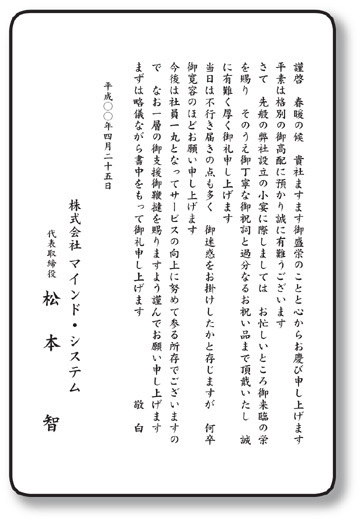 謹啓　春暖の候　貴社ますます御盛栄のことと心からお慶び申し上げます
平素は格別の御高配に預かり誠に有難うございます
さて　先般の弊社設立の小宴に際しましては　お忙しいところ御来臨の栄
を賜り　そのうえ御丁寧な御祝詞と過分なるお祝い品まで頂戴いたし　誠
に有難く厚く御礼申し上げます
当日は不行き届きの点も多く　御迷惑をお掛けしたかと存じますが　何卒
御寛容のほどお願い申し上げます
今後は社員一丸となってサービスの向上に努めて参る所存でございますの
で　なお一層の御支援御鞭撻を賜りますよう謹んでお願い申し上げます
まずは略儀ながら書中をもって御礼申し上げます　　　　　敬　白
平成〇〇年四月二十五日
株式会社 マインド・システム
代表取締役　松　本　　智